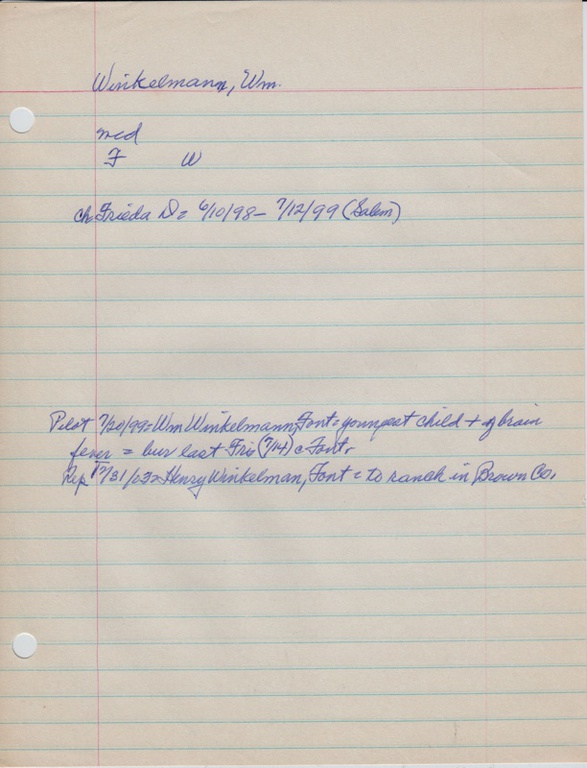 Winkelmann, Wm.
med
F W
ch Frieda D = 6/10/98 - 7/12/99 (Salem)
Pilot 7/20/99 = Wm Winkelmann, Font = youngest child + of brain
fever = bur last Fri (7/14) c Font.
Rep 12/31/03 = Henry Winkelman, Font = to ranch in Brown Co.